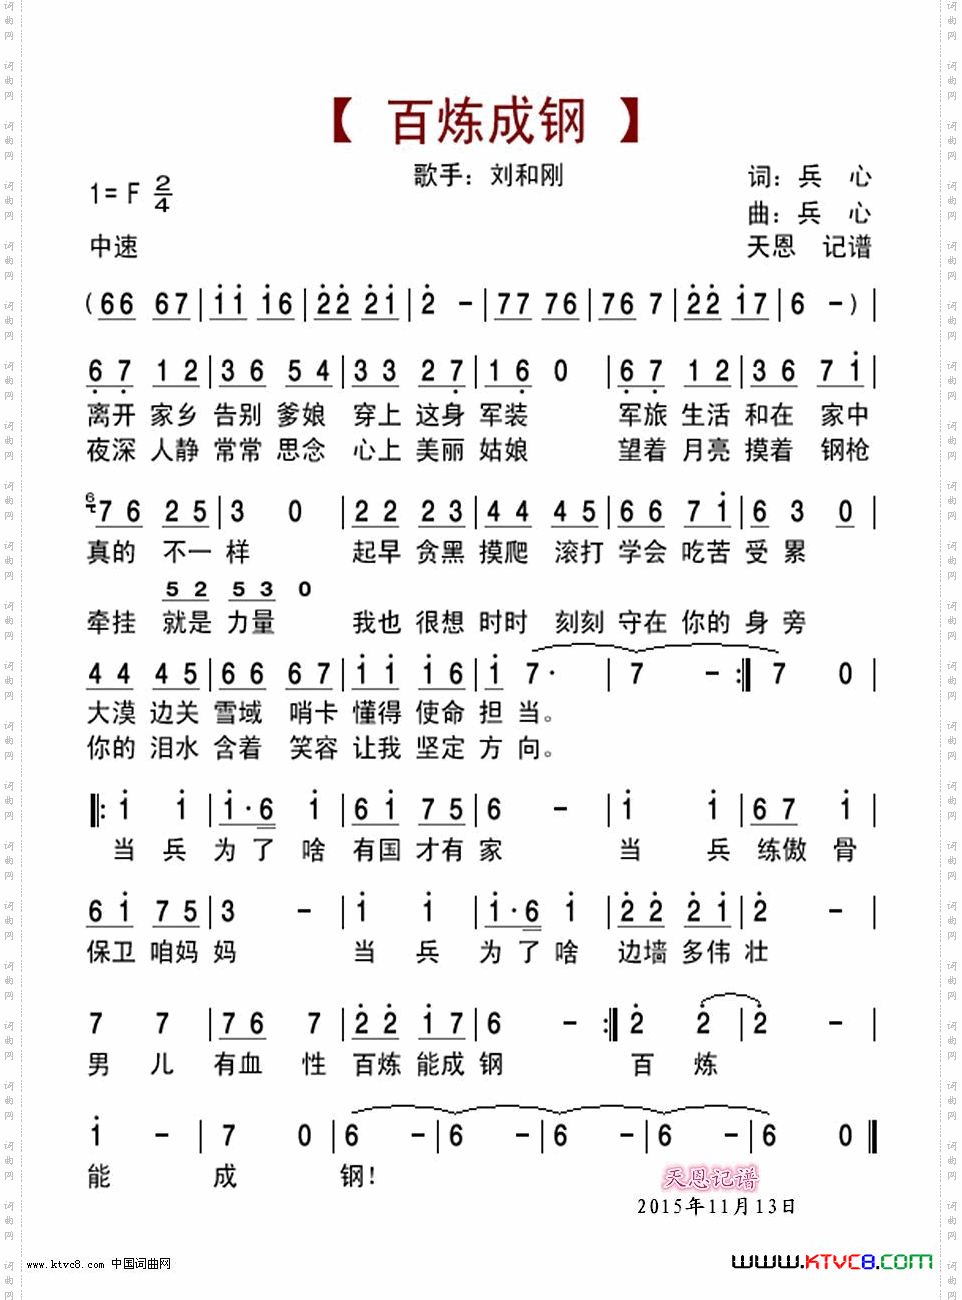 【 百炼成钢 】
歌手：刘和刚
1= F 2/4
词：兵 心
曲：兵 心
中速
天恩 记谱
( 66 67 | i̇i̇ i̇6 | 2̇2̇ 2̇i̇ | 2̇ - | 77 76 | 76 7 | 2̇2̇ i̇7 | 6 - ) |
6̣ 7̣ 1 2 | 3 6 5 4 | 3 3 2 7̣ | 1 6̣ 0 | 6̣ 7̣ 1 2 | 3 6 7 i̇ |
离开 家乡 告别 爹娘 穿上 这身 军装 军旅 生活 和在 家中
夜深 人静 常常 思念 心上 美丽 姑娘 望着 月亮 摸着 钢枪
6 7 6 2 5 | 3 0 | 2 2 2 3 | 4 4 4 5 | 6 6 7 i̇ | 6 3 0 |
真的 不一 样 起早 贪黑 摸爬 滚打 学会 吃苦 受 累
5 2 5 3 0
牵挂 就是 力量 我也 很想 时时 刻刻 守在 你的 身 旁
4 4 4 5 | 6 6 6 7 | i̇ i̇ i̇ 6 | i̇ 7· | 7 - :| 7 0 |
大漠 边关 雪域 哨卡 懂得 使命 担 当。
你的 泪水 含着 笑容 让我 坚定 方 向。
|: i̇ i̇ | i̇·6 i̇ | 6 i̇ 7 5 | 6 - | i̇ i̇ | 6 7 i̇ |
当 兵 为 了 啥 有国 才有 家 当 兵 练傲 骨
6 i̇ 7 5 | 3 - | i̇ i̇ | i̇·6 i̇ | 2̇ 2̇ 2̇ i̇ | 2̇ - |
保卫 咱妈 妈 当 兵 为 了 啥 边墙 多伟 壮
7 7 | 7 6 7 | 2̇ 2̇ i̇ 7 | 6 - :| 2̇ 2̇ | 2̇ - |
男 儿 有血 性 百炼 能成 钢 百 炼
i̇ - | 7 0 | 6 - | 6 - | 6 - | 6 - | 6 0 ||
能 成 钢！
天恩记谱
2015年11月13日
www.ktvc8.com 中国词曲网
WWW.KTVC8.COM